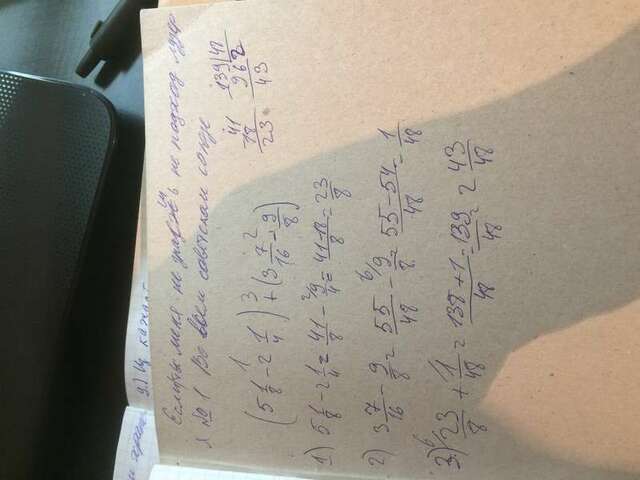 9.) Из кажд
Если ты меня не уважишь не подход лузер
я №1 Во всем советском союзе
(5 1/8 - 2 1/4) + (3 7/16 - 9/8)
1 3 2
41
18
23
139 | 48
96 2
43
1) 5 1/8 - 2 1/4 = 41/8 - 2/9/4 = 41-18/8 = 23/8
2) 3 7/16 - 9/8 = 55/48 - 6/9/8 = 55-54/48 = 1/48
3.) 6/23/8 + 1/48 = 138+1/48 = 139/48 = 2 43/48